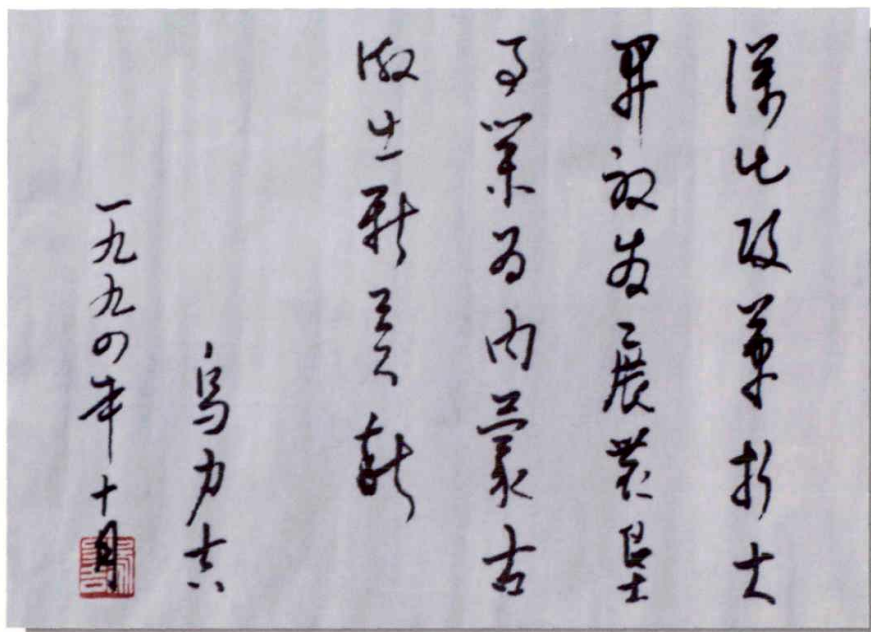 深化改革扩大
開放发展農垦
事業为内蒙古
做出新贡献
乌力吉
一九九四年十月